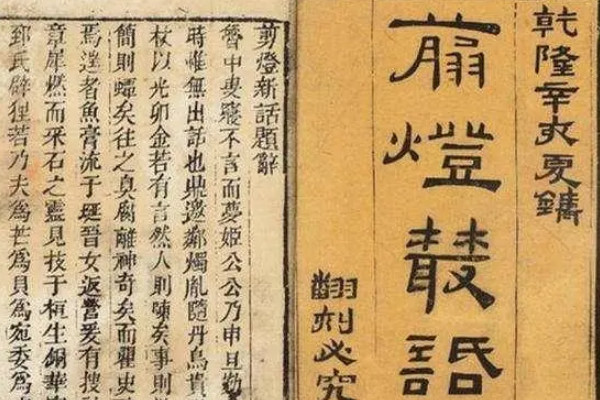 乾隆辛亥夏鐫
翦燈叢話
翻刻必究
剪燈新話題辭
魯中叟寢不言而夢姬公公乃申旦勤
時惟無出話也鼎邀鄰燭胤隨丹烏賁
杖以光卯金若有言然人則喙矣事則
簡則蟫矣往之臭腐離神奇矣而瞿史
焉逞者魚膏流于斑晉女返營爰有搜
章犀燃而采石之靈見技于桓生華
郅氏辟狸若乃夫爲芒爲貝爲宛委爲